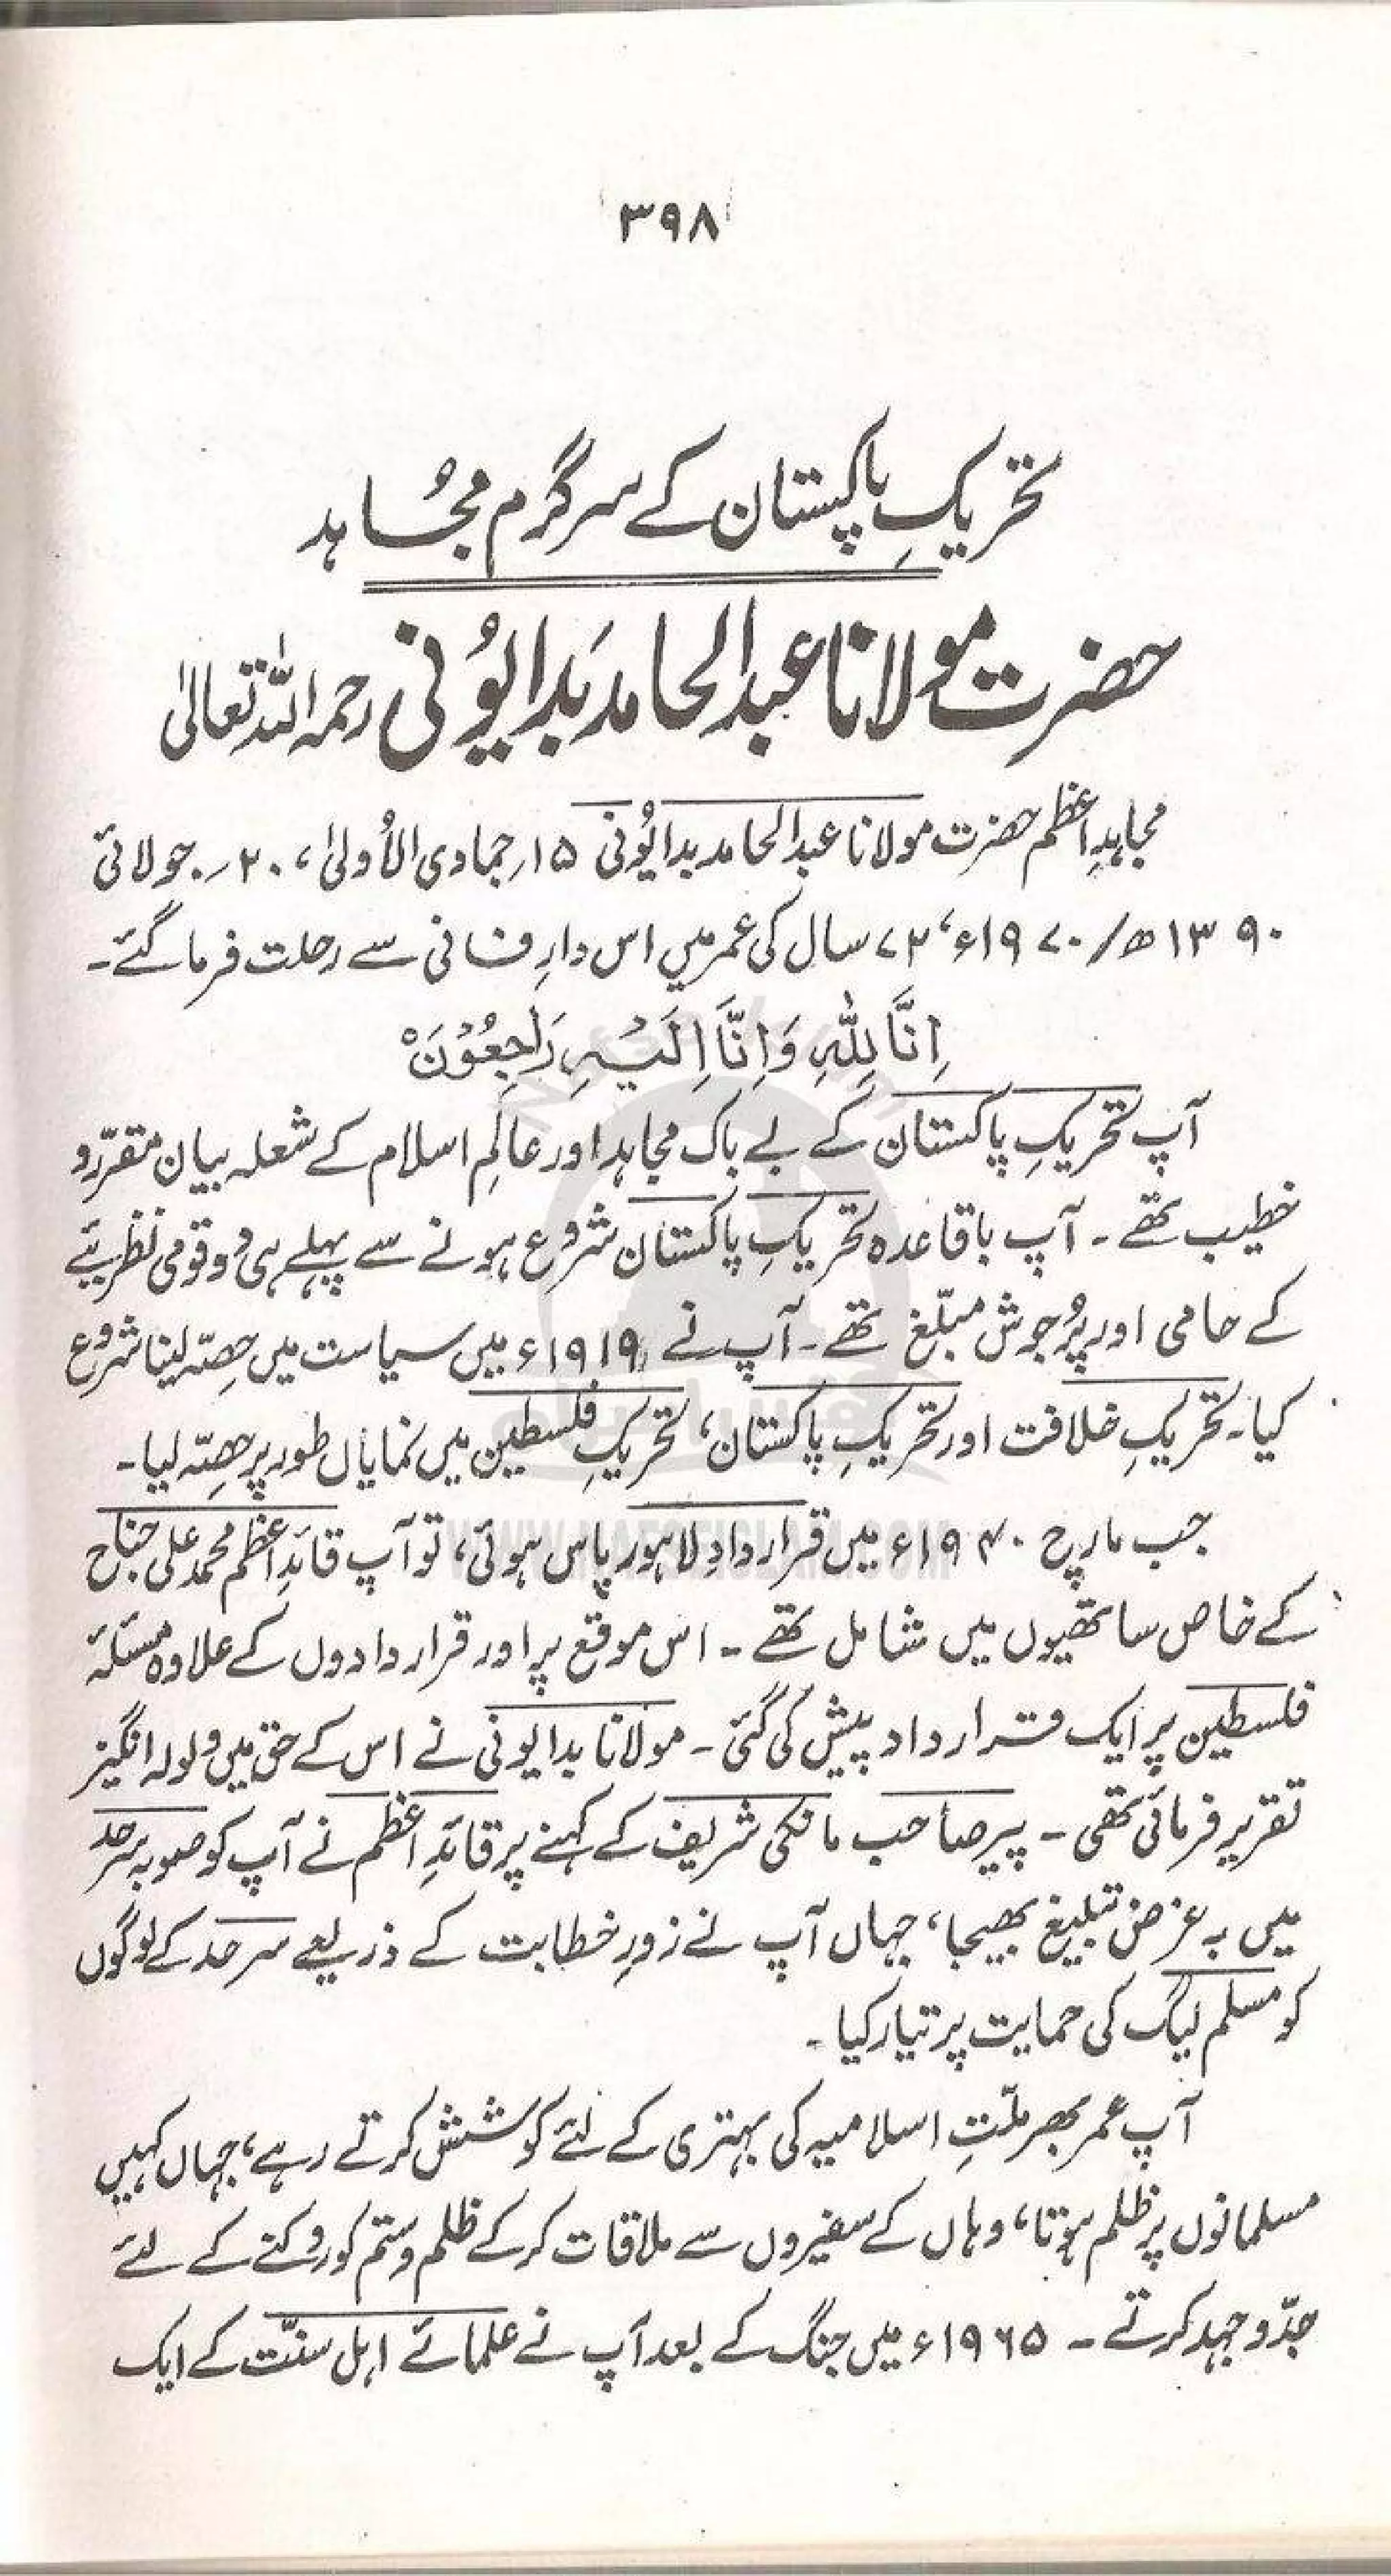 ۳۹۸
تحریکِ پاکستان کے سرگرم مجُاہد
حضرت مولانا عبدالحامد بَدایوُنی رحمہ اللہ تعالیٰ
مجاہدِ اعظم حضرت مولانا عبدالحامد بدایوُنی ۱۵؍ جمادی الاُولیٰ، ۲۰؍ جولائی
۱۳۹۰ھ/۱۹۷۰ء، ۷۲ سال کی عمر میں اس دارِ فانی سے رحلت فرما گئے۔
اِنَّا لِلّٰہِ وَاِنَّا اِلَیْہِ رَاجِعُوْنَ ہ
آپ تحریکِ پاکستان کے بے باک مجاہد اور عالَمِ اسلام کے شعلہ بیان مقرّر و
خطیب تھے۔ آپ باقاعدہ تحریکِ پاکستان شروع ہونے سے پہلے ہی دو قومی نظریئے
کے حامی اور پُرجوش مبلّغ تھے۔ آپ نے ۱۹۱۹ء میں سیاست میں حِصّہ لینا شروع
کیا۔ تحریکِ خلافت اور تحریکِ پاکستان، تحریکِ فلسطین میں نمایاں طور پر حِصّہ لیا۔
جب مارچ ۱۹۴۰ء میں قراردادِ لاہور پاس ہوئی، تو آپ قائدِ اعظم محمد علی جناح
کے خاص ساتھیوں میں شامل تھے۔ اس موقع پر اور قراردادوں کے علاوہ مسئلہ
فلسطین پر ایک قرارداد پیش کی گئی۔ مولانا بدایونی نے اس کے حق میں ولولہ انگیز
تقریر فرمائی تھی۔ پیر صاحب مانکی شریف کے کہنے پر قائدِ اعظم نے آپ کو صوبہ سرحد
میں بہ غرض تبلیغ بھیجا، جہاں آپ نے زورِ خطابت کے ذریعے سرحد کے لوگوں
کو مسلم لیگ کی حمایت پر تیار کیا۔
آپ عمر بھر ملّتِ اسلامیہ کی بہتری کے لئے کوشش کرتے رہے، جہاں کہیں
مسلمانوں پر ظلم ہوتا، وہاں کے سفیروں سے ملاقات کر کے ظلم و ستم کو روکنے کے لئے
جدّو جہد کرتے۔ ۱۹۶۵ء میں جنگ کے بعد آپ نے علمائے اہل سنّت کے ایک
WWW.NAFSEISLAM.COM